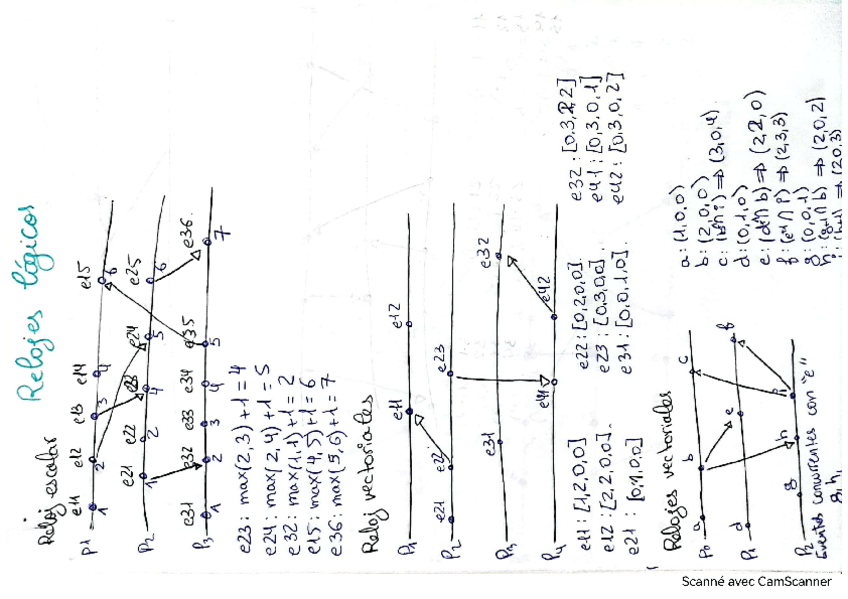 Relojes lógicos
Reloj escolar
P1 e11 e12 e13 e14 e15
1 2 3 4 6
P2 e21 e22 e23 e24 e25
1 2 4 5 6
P3 e31 e32 e33 e34 e35 e36
1 2 3 4 5 7
e23: max(2,3)+1=4
e24: max(2,4)+1=5
e32: max(1,1)+1=2
e15: max(4,5)+1=6
e36: max(5,6)+1=7
Reloj vectoriales
P1 e11 e12
P2 e21 e22 e23
P3 e31 e32
P4 e41 e42
e11: [1,2,0,0]
e12: [2,2,0,0].
e21: [0,1,0,0]
e22: [0,2,0,0].
e23: [0,3,0,0].
e31: [0,0,1,0].
e32: [0,3,2,2]
e41: [0,3,0,1]
e42: [0,3,0,2]
Relojes vectoriales
P0 a b c
P1 d e f
P2 g h i
Eventos concurrentes con "e"
g, h,
a: (1,0,0)
b: (2,0,0)
c: (b∩i) ⇒ (3,0,4)
d: (0,1,0)
e: (d∩b) ⇒ (2,2,0)
f: (e∩i) ⇒ (2,3,3)
g: (0,0,1)
h: (g∩b) ⇒ (2,0,2)
i: (h+1) ⇒ (2,0,3)
Scanné avec CamScanner